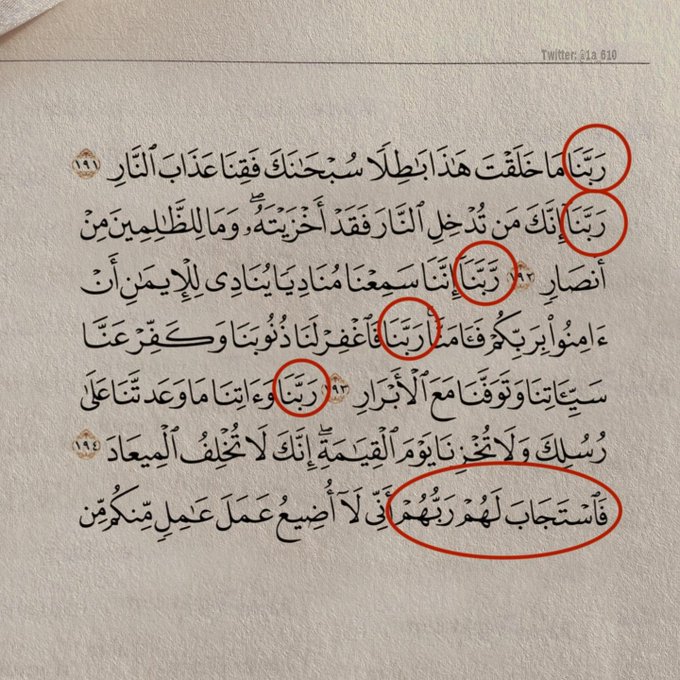 Twitter: @1a_610
رَبَّنَا مَا خَلَقْتَ هَٰذَا بَٰطِلًا سُبْحَٰنَكَ فَقِنَا عَذَابَ ٱلنَّارِ ١٩١
رَبَّنَآ إِنَّكَ مَن تُدْخِلِ ٱلنَّارَ فَقَدْ أَخْزَيْتَهُۥ ۖ وَمَا لِلظَّٰلِمِينَ مِنْ
أَنصَارٍ ١٩٢ رَّبَّنَآ إِنَّنَا سَمِعْنَا مُنَادِيًا يُنَادِى لِلْإِيمَٰنِ أَنْ
ءَامِنُوا۟ بِرَبِّكُمْ فَـَٔامَنَّا ۚ رَبَّنَا فَٱغْفِرْ لَنَا ذُنُوبَنَا وَكَفِّرْ عَنَّا
سَيِّـَٔاتِنَا وَتَوَفَّنَا مَعَ ٱلْأَبْرَارِ ١٩٣ رَبَّنَا وَءَاتِنَا مَا وَعَدتَّنَا عَلَىٰ
رُسُلِكَ وَلَا تُخْزِنَا يَوْمَ ٱلْقِيَٰمَةِ ۗ إِنَّكَ لَا تُخْلِفُ ٱلْمِيعَادَ ١٩٤
فَٱسْتَجَابَ لَهُمْ رَبُّهُمْ أَنِّى لَآ أُضِيعُ عَمَلَ عَٰمِلٍ مِّنكُم مِّن